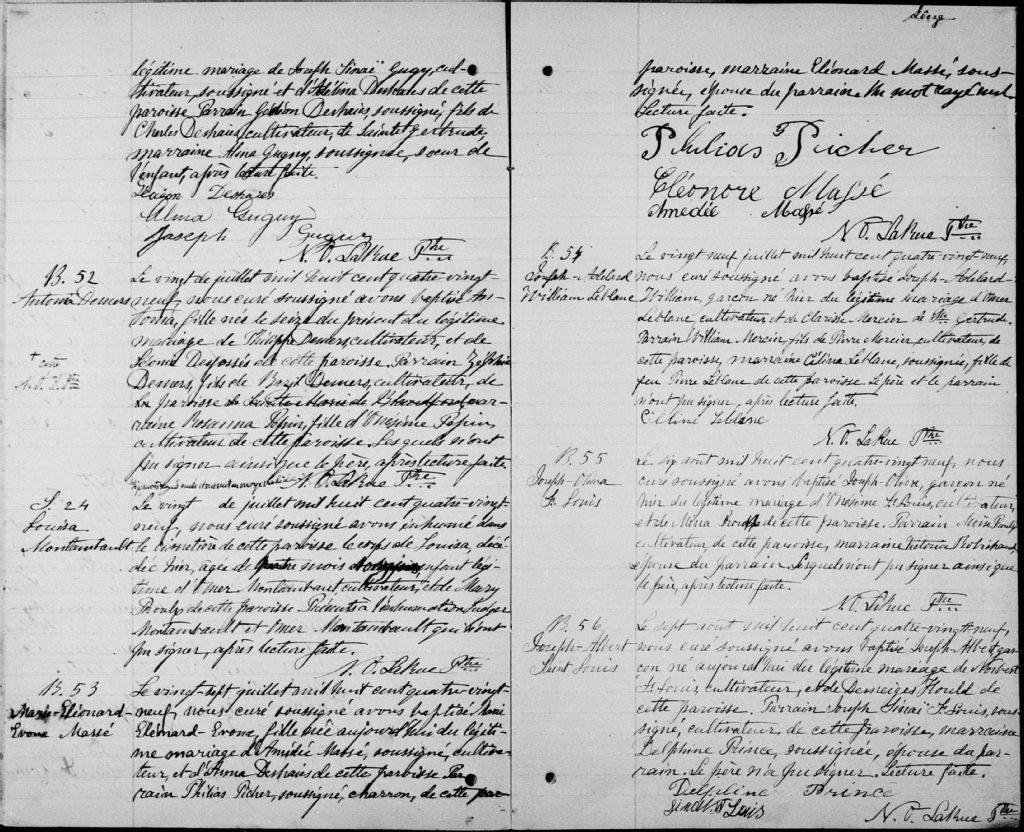 légitime mariage de Joseph Sinaï Gugy, cul-
tivateur, soussigné et d'Adélina Deshaies de cette
paroisse Parrain Gédéon Deshaies, soussigné, fils de
Charles Deshaies, cultivateur, de Sainte Gertrude,
marraine Alma Gugny, soussignée, soeur de
l'enfant, après lecture faite.
Deshaies
Alma Guguy
Joseph Guguy
N. O. LaRue Ptre
B. 52
Antonia Demers
Le vingt de juillet mil huit cent quatre-vingt-
neuf, nous curé soussigné avons baptisé An-
tonia, fille née le seize du présent du légitime
mariage de Philippe Demers, cultivateur, et de
Léonie Desfossés de cette paroisse. Parrain Zéphirin
Demers, fils de Bazil Demers, cultivateur, de
la paroisse mar-
raine Rosanna Pépin, fille d'Onésime Pépin,
cultivateur de cette paroisse. Lesquels n'ont
pu signer ainsi que le père, après lecture faite.
N. O. LaRue Ptre
S. 24
Louisa
Montambault
Le vingt de juillet mil huit cent quatre-vingt-
neuf, nous curé soussigné avons inhumé dans
le cimetière de cette paroisse le corps de Louisa, décé-
dée hier, agée de quatre mois enfant légi-
time d'Omer Montambault, cultivateur, et de Mary
Roulx de cette paroisse. Présents à l'inhumation Judger
Montambault et Omer Montambault qui n'ont
pu signer, après lecture faite.
N. O. LaRue Ptre
B. 53
Marie-Eléonard-
Evone Massé
Le vingt-sept juillet mil huit cent quatre-vingt-
neuf, nous curé soussigné avons baptisé Marie
Eléonard-Evone, fille née aujourd'hui du légiti-
me mariage d'Amédée Massé, soussigné, cultiva-
teur, et d'Anna Deshaies de cette paroisse Par-
rain Philias Picher, soussigné, charron, de cette par
paroisse, marraine Eléonard Massé, sous-
signée, épouse du parrain. Un mot rayé nul.
Lecture faite.
Philias Picher
Eléonore Massé
Amedée Massé
N. O. LaRue Ptre
B. 54
Joseph-Adelard
William Leblanc
Le vingt neuf juillet mil huit cent quatre-vingt neuf,
nous curé soussigné avons baptisé Joseph-Adelard
William, garçon né hier du légitime mariage d'Omer
Leblanc, cultivateur et de Clarisse Mercier de Ste Gertrude.
Parrain William Mercier, fils de Pierre Mercier, cultivateur, de
cette paroisse, marraine Célina Leblanc, soussignée, fille de
feu Pierre Leblanc de cette paroisse. Le père et le parrain
n'ont pu signer, après lecture faite.
Céline Leblanc
N. O. LaRue Ptre
B. 55
Joseph-Oliva
St Louis
Le six août mil huit cent quatre-vingt neuf, nous
curé soussigné avons baptisé Joseph-Oliva, garçon né
hier du légitime mariage d'Onésime St Louis, cultivateur,
et de de cette paroisse. Parrain Moïse
cultivateur, de cette paroisse, marraine Victoria Robichaud,
épouse du parrain. Lesquels n'ont pu signer ainsi que
le père, après lecture faite.
N. O. LaRue Ptre
B. 56
Joseph-Albert
Saint Louis
Le sept août mil huit cent quatre-vingt-neuf,
nous curé soussigné avons baptisé Joseph-Albert gar-
çon né aujourd'hui du légitime mariage de Norbert
St Louis, cultivateur, et de Demeiges Hould de
cette paroisse. Parrain Joseph Sinaï St Louis, sous-
signé, cultivateur de cette paroisse, marraine
Delphine Prince, soussignée, épouse du par-
rain. Le père n'a pu signer. Lecture faite.
Delphine Prince
Sinai St Louis
N. O. LaRue Ptre